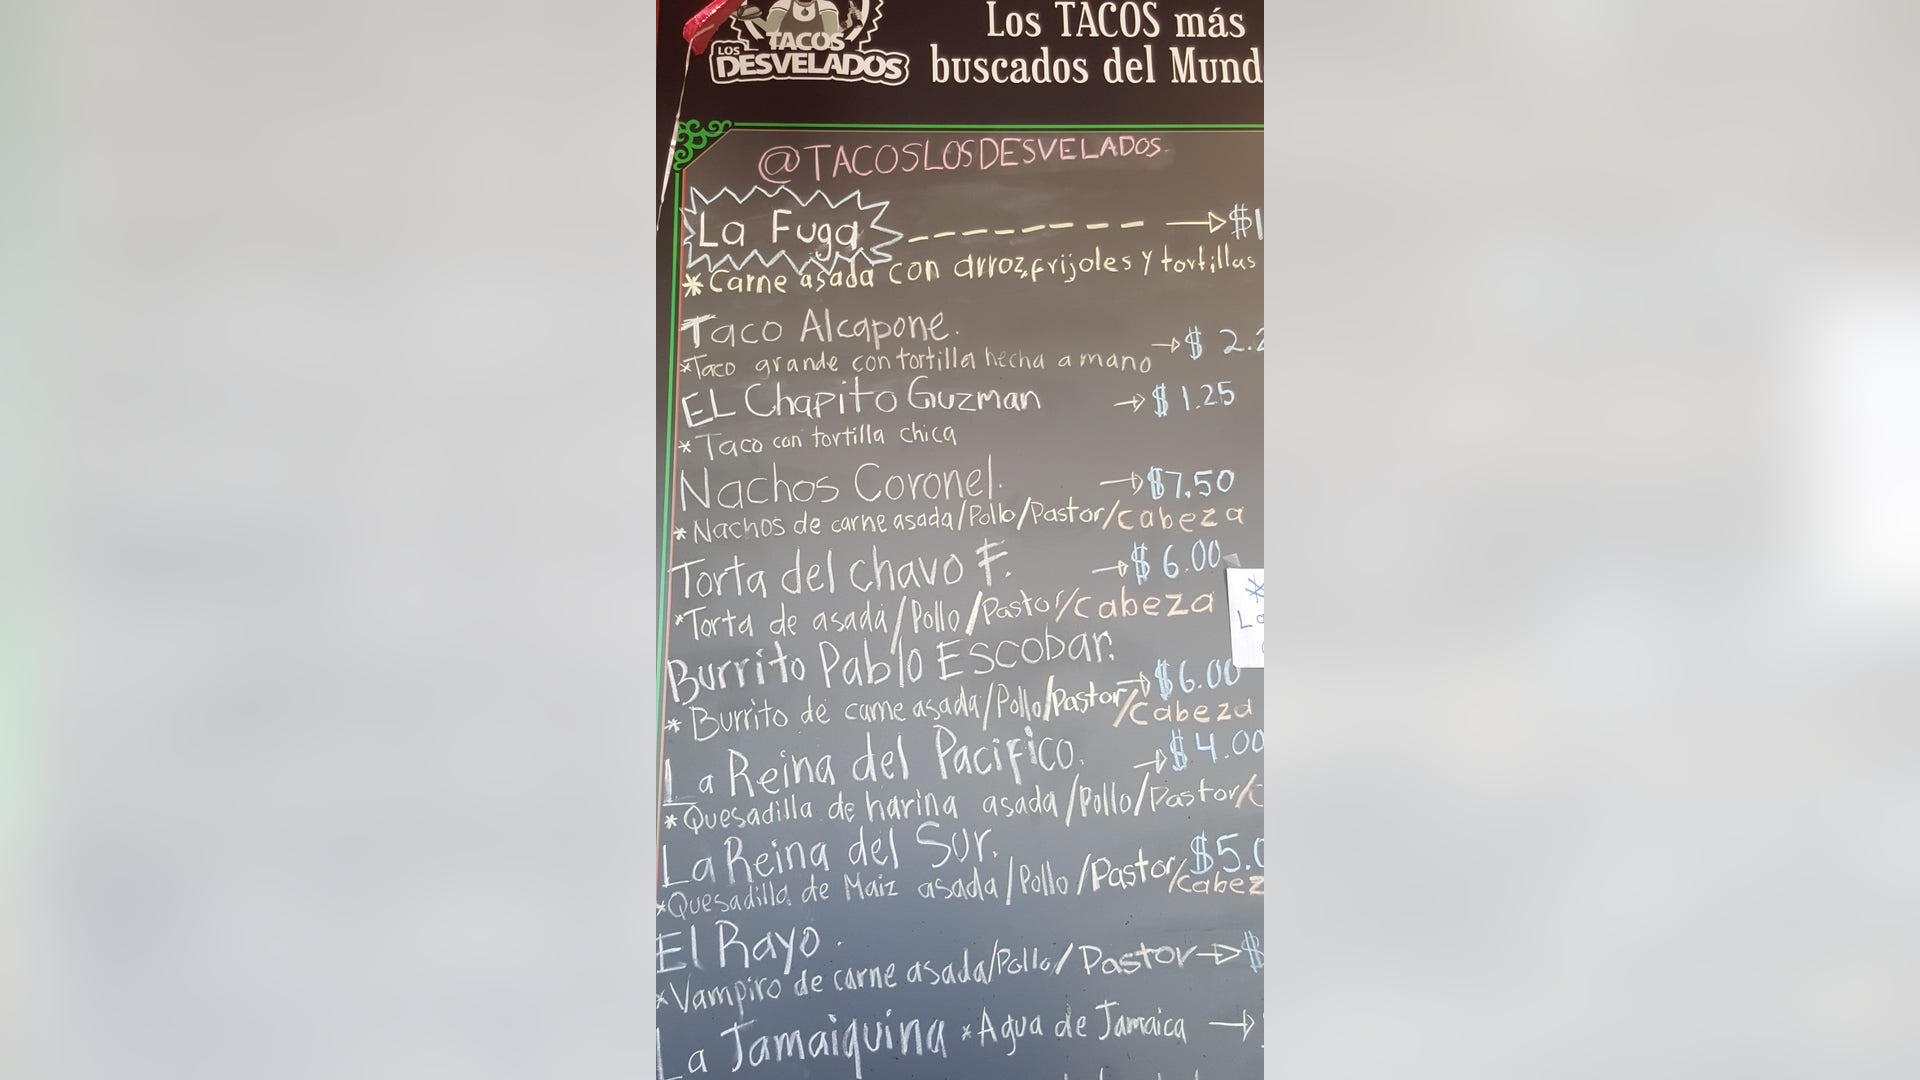 TACOS
LOS
DESVELADOS
Los TACOS más
buscados del Mund
@TACOSLOSDESVELADOS.
La Fuga --------→$1
*Carne asada con arroz,frijoles y tortillas
Taco Alcapone.
→$ 2.2
*Taco grande con tortilla hecha a mano
EL Chapito Guzman →$ 1.25
*Taco con tortilla chica
Nachos Coronel. →$7.50
*Nachos de carne asada/Pollo/Pastor/cabeza
Torta del chavo F. →$ 6.00
*Torta de asada/Pollo/Pastor/cabeza
Burrito Pablo Escobar. →$6.00
*Burrito de carne asada/Pollo/Pastor/cabeza
La Reina del Pacifico. →$4.00
*Quesadilla de harina asada/Pollo/Pastor/c
La Reina del Sur. $5.0
*Quesadilla de Maiz asada/Pollo/Pastor/cabez
El Rayo.
*Vampiro de carne asada/Pollo/Pastor→$
La Jamaiquina *Agua de Jamaica →